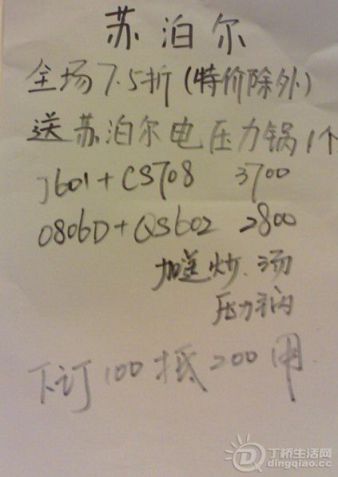 苏泊尔
全场7.5折(特价除外)
送苏泊尔电压力锅1个
J601+CS708 3700
0806D+QS602 2800
加送炒、汤
压力锅
下订100抵200用
丁桥生活网
dingqiao.cc